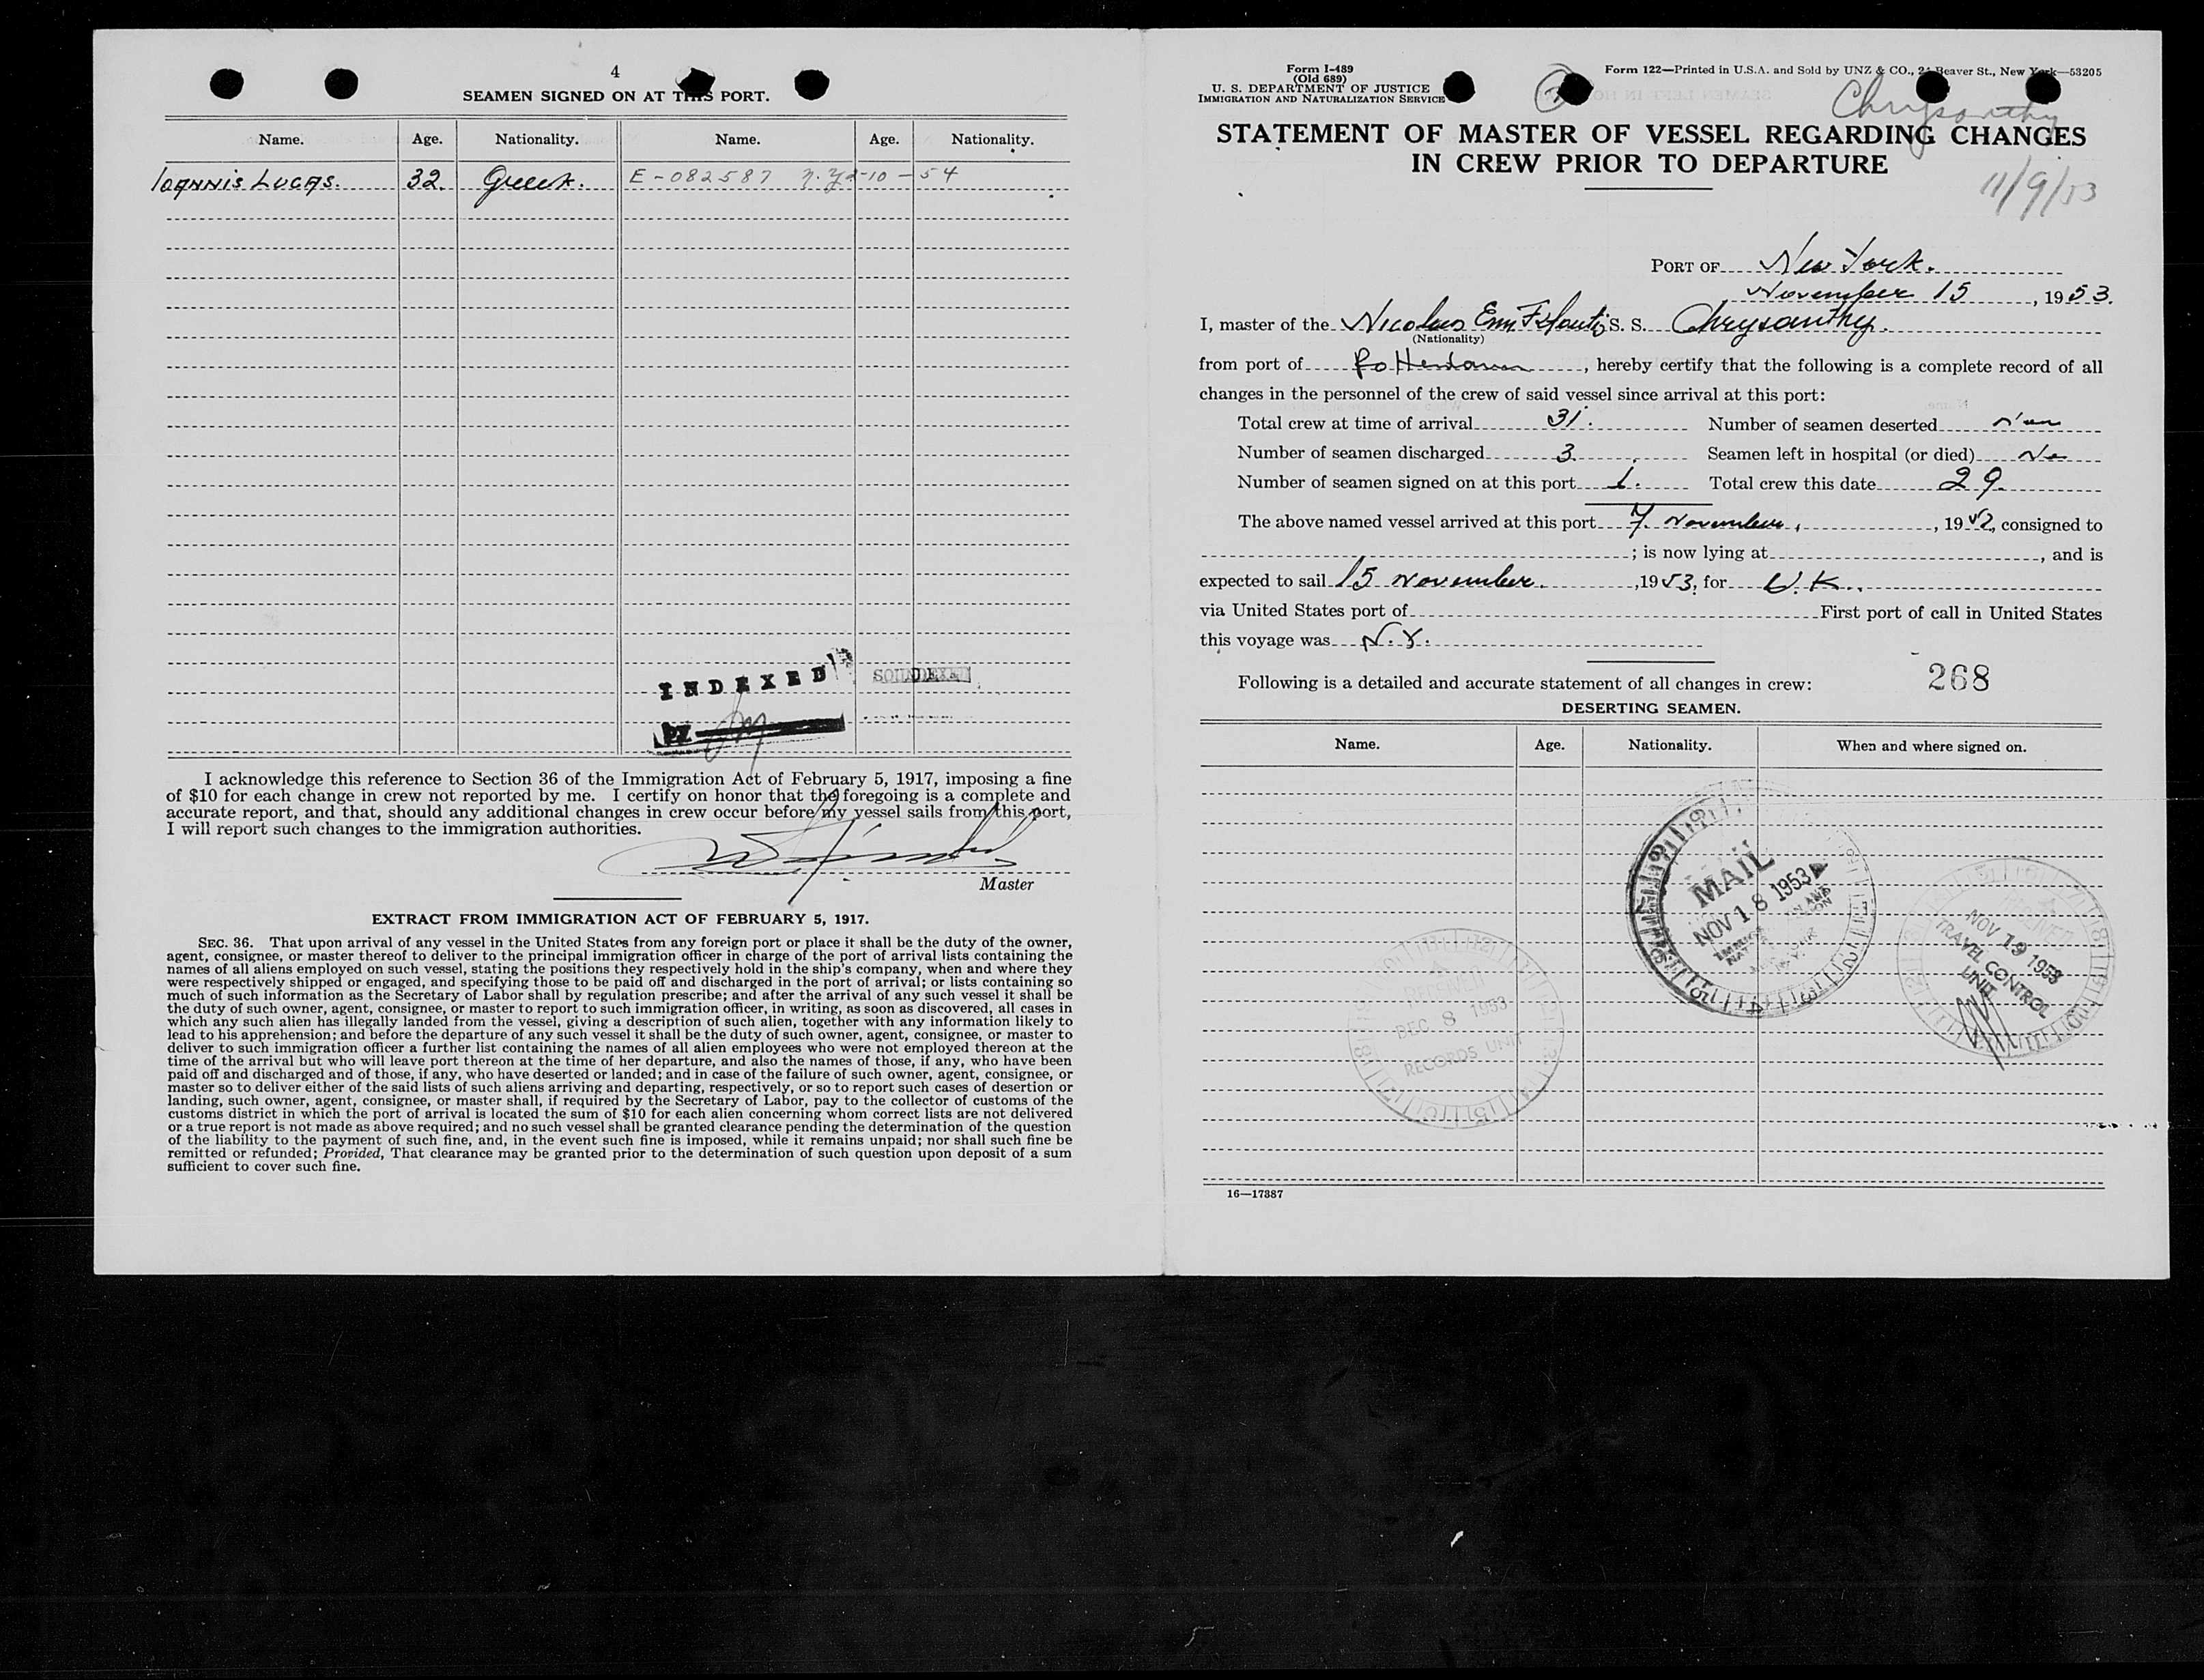 4
SEAMEN SIGNED ON AT THIS PORT.
Name. Age. Nationality. Name. Age. Nationality.
IOANNIS LUCAS. 32. Greek. E-082587 N.Y. -10-54
INDEXED
SOUNDEXED
I acknowledge this reference to Section 36 of the Immigration Act of February 5, 1917, imposing a fine
of $10 for each change in crew not reported by me. I certify on honor that the foregoing is a complete and
accurate report, and that, should any additional changes in crew occur before my vessel sails from this port,
I will report such changes to the immigration authorities.
Master
EXTRACT FROM IMMIGRATION ACT OF FEBRUARY 5, 1917.
SEC. 36. That upon arrival of any vessel in the United States from any foreign port or place it shall be the duty of the owner,
agent, consignee, or master thereof to deliver to the principal immigration officer in charge of the port of arrival lists containing the
names of all aliens employed on such vessel, stating the positions they respectively hold in the ship's company, when and where they
were respectively shipped or engaged, and specifying those to be paid off and discharged in the port of arrival; or lists containing so
much of such information as the Secretary of Labor shall by regulation prescribe; and after the arrival of any such vessel it shall be
the duty of such owner, agent, consignee, or master to report to such immigration officer, in writing, as soon as discovered, all cases in
which any such alien has illegally landed from the vessel, giving a description of such alien, together with any information likely to
lead to his apprehension; and before the departure of any such vessel it shall be the duty of such owner, agent, consignee, or master to
deliver to such immigration officer a further list containing the names of all alien employees who were not employed thereon at the
time of the arrival but who will leave port thereon at the time of her departure, and also the names of those, if any, who have been
paid off and discharged and of those, if any, who have deserted or landed; and in case of the failure of such owner, agent, consignee, or
master so to deliver either of the said lists of such aliens arriving and departing, respectively, or so to report such cases of desertion or
landing, such owner, agent, consignee, or master shall, if required by the Secretary of Labor, pay to the collector of customs of the
customs district in which the port of arrival is located the sum of $10 for each alien concerning whom correct lists are not delivered
or a true report is not made as above required; and no such vessel shall be granted clearance pending the determination of the question
of the liability to the payment of such fine, and, in the event such fine is imposed, while it remains unpaid; nor shall such fine be
remitted or refunded; Provided, That clearance may be granted prior to the determination of such question upon deposit of a sum
sufficient to cover such fine.
Form I-489
(Old 689)
U. S. DEPARTMENT OF JUSTICE
IMMIGRATION AND NATURALIZATION SERVICE
Form 122—Printed in U.S.A. and Sold by UNZ & CO., 24 Beaver St., New York—53205
Chrysanthy
STATEMENT OF MASTER OF VESSEL REGARDING CHANGES
IN CREW PRIOR TO DEPARTURE
11/9/53
PORT OF New York.
November 15, 1953.
I, master of the Nicolaos Em. S. S. Chrysanthy.
(Nationality)
from port of Rotterdam, hereby certify that the following is a complete record of all
changes in the personnel of the crew of said vessel since arrival at this port:
Total crew at time of arrival 31. Number of seamen deserted
Number of seamen discharged 3. Seamen left in hospital (or died) No
Number of seamen signed on at this port 1. Total crew this date 29.
The above named vessel arrived at this port 7. November, 19 , consigned to
; is now lying at , and is
expected to sail 15 November. ,1953, for U.K.
via United States port of First port of call in United States
this voyage was N.Y.
Following is a detailed and accurate statement of all changes in crew: 268
DESERTING SEAMEN.
Name. Age. Nationality. When and where signed on.
MAIL
NOV 18 1953
RECEIVED
NOV 19 1953
TRAVEL CONTROL
UNIT
RECEIVED
DEC 8 1953
RECORDS UNIT
16—17387